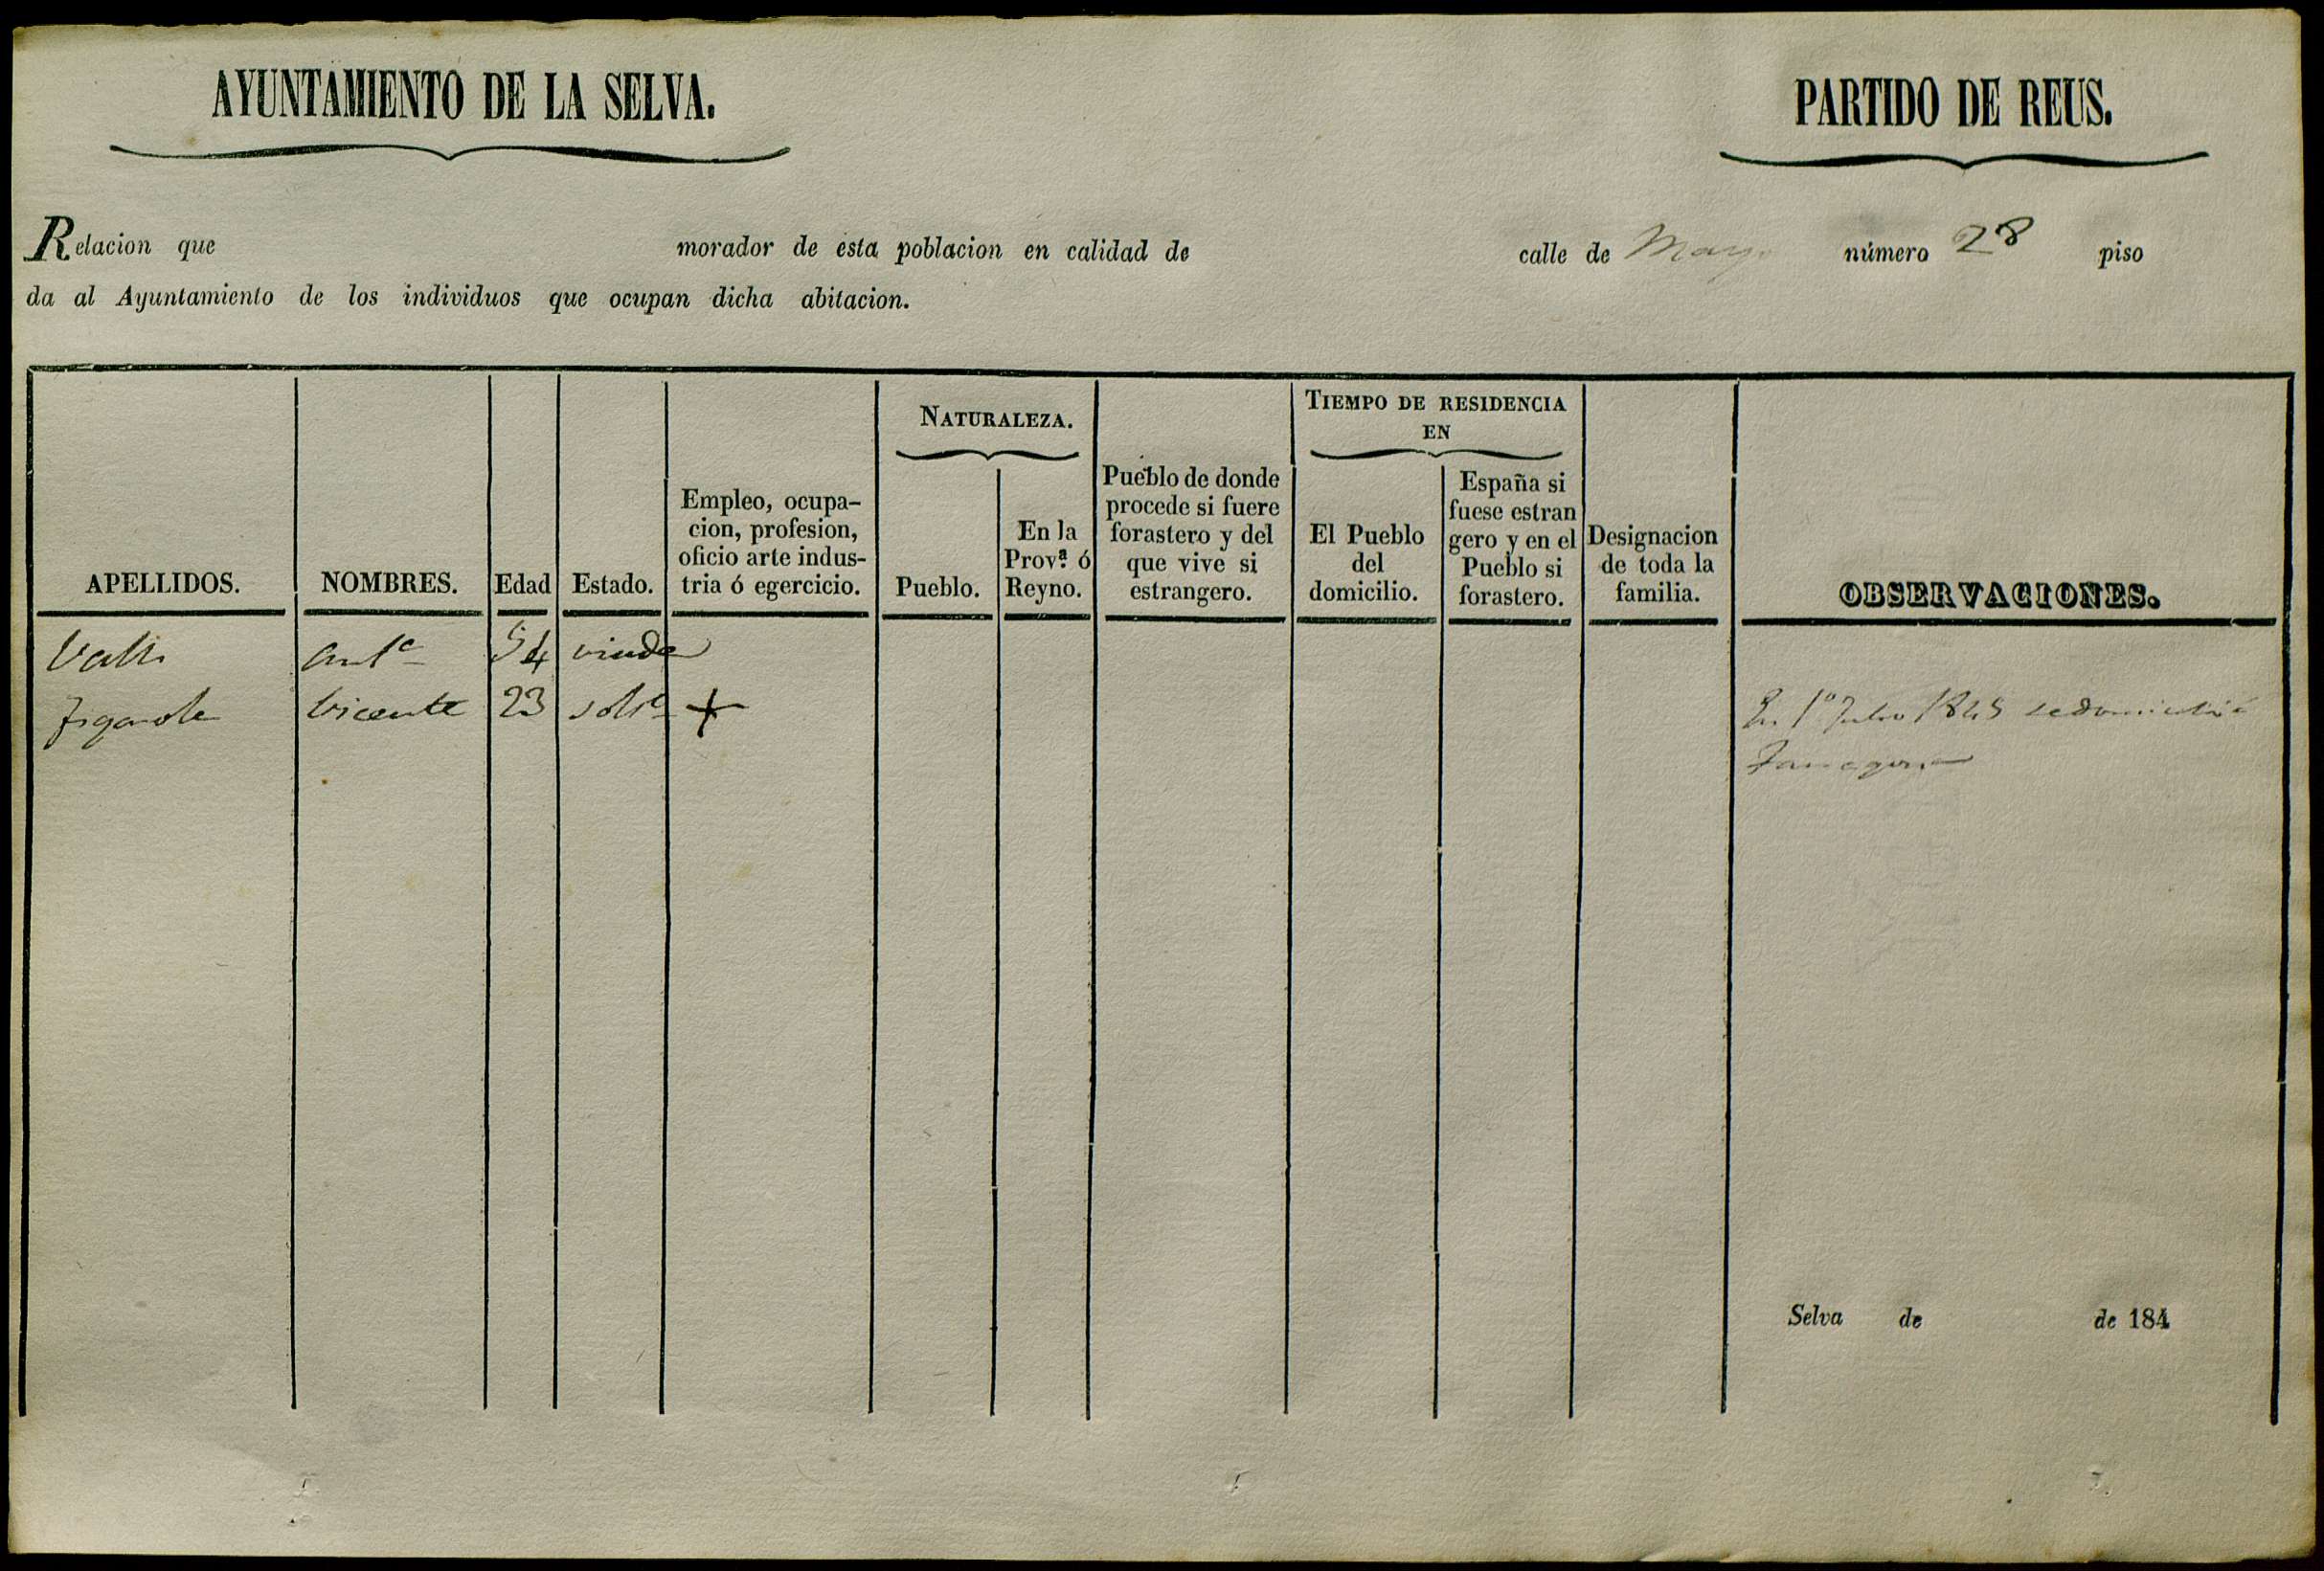 AYUNTAMIENTO DE LA SELVA.
PARTIDO DE REUS.
Relacion que morador de esta poblacion en calidad de calle de Mayor número 28 piso
da al Ayuntamiento de los individuos que ocupan dicha abitacion.
APELLIDOS.
NOMBRES.
Edad
Estado.
Empleo, ocupa-
cion, profesion,
oficio arte indus-
tria ó egercicio.
NATURALEZA.
Pueblo.
En la
Prov.ª ó
Reyno.
Pueblo de donde
procede si fuere
forastero y del
que vive si
estrangero.
TIEMPO DE RESIDENCIA
EN
El Pueblo
del
domicilio.
España si
fuese estran
gero y en el
Pueblo si
forastero.
Designacion
de toda la
familia.
OBSERVACIONES.
Valls Antª 54 viuda
Figarola Vicente 23 solt.º +
En 1º Julio 1845 se domicilió
Tarragona
Selva de de 184